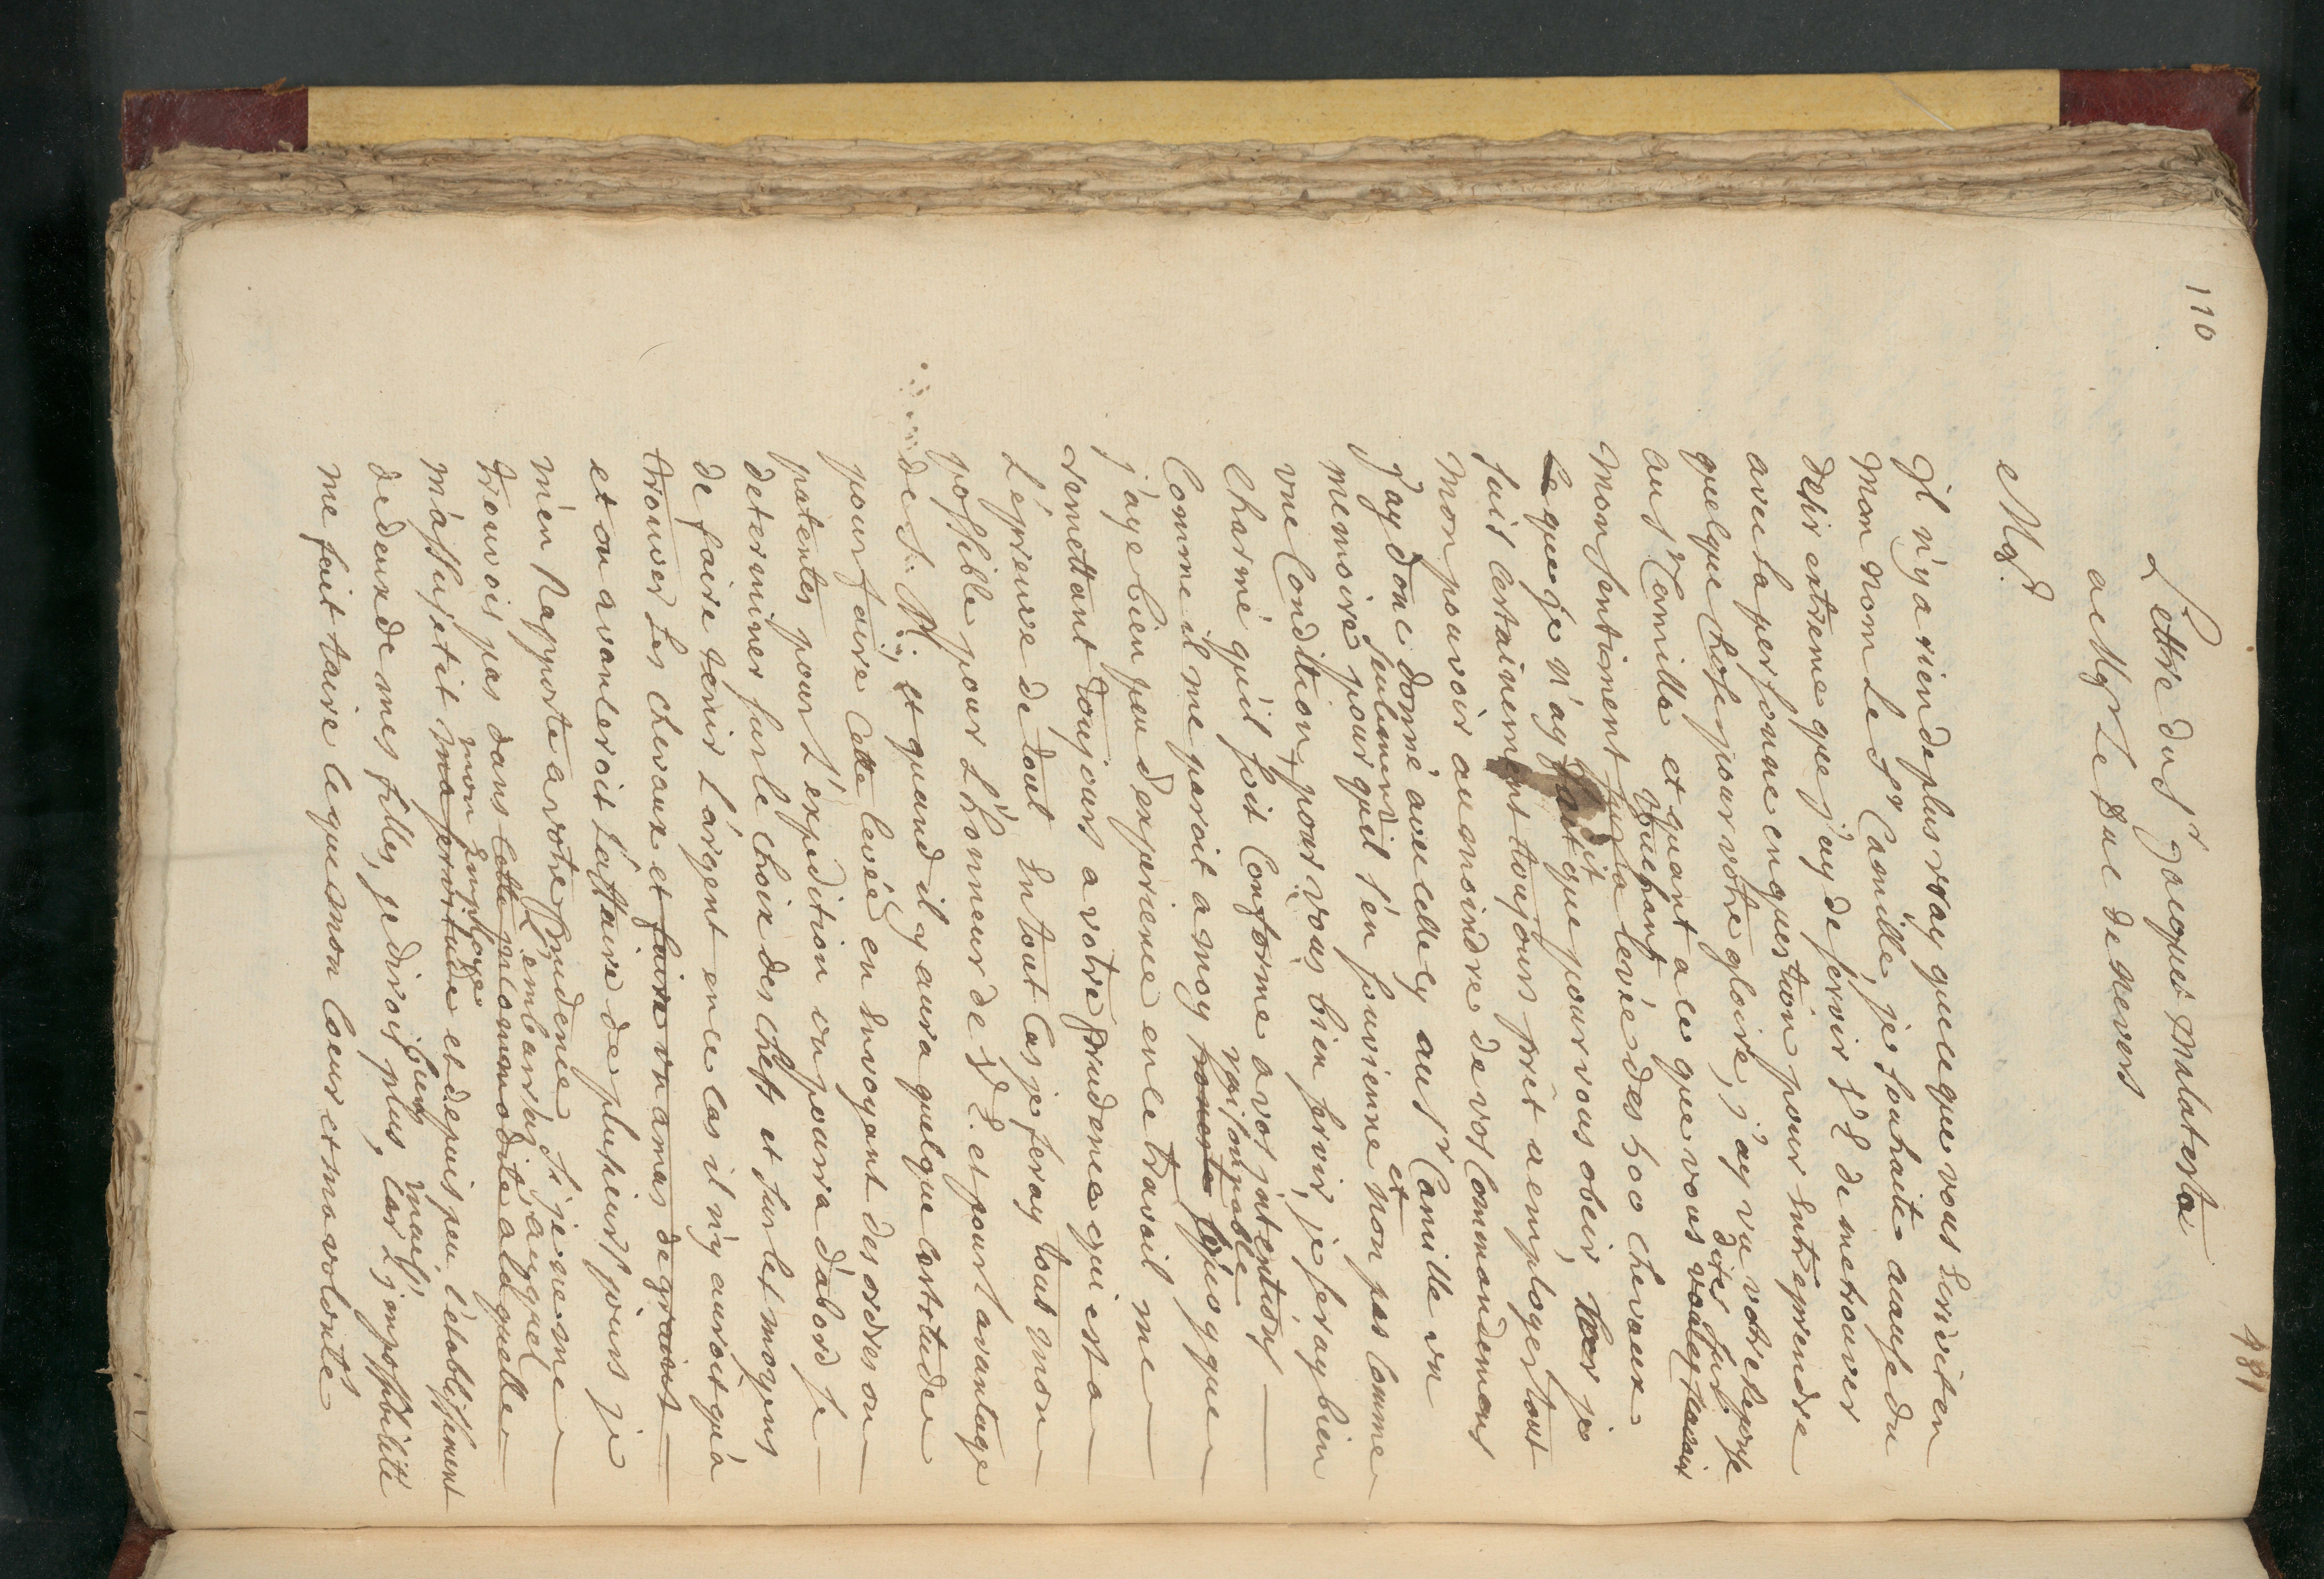 110
481
Lettre du Sr Jacques Malatesta
a Mgr Le Duc de Nevers
Mgr.
Il n'y a rien de plus vray que ce que vous Ecrivit en
mon nom Le Sr Camille, je souhaite a cause du
desir extreme que j'ay de servir S. E. de me trouver
avec sa personne en question pour Entreprendre
quelque chose pour votre gloire, j'ay vu votre Reponse
dites sur.
au Sr Camille et quant a ce que vous voulez scavoir
touchant
mon sentiment sur la levée des 600 chevaux
Ce que je n'ay fait que pour vous obeir, car je
dit
suis certainement toujours prêt a employer tout
mon pouvoir au moindre de vos Commandemens
J'ay donc donné avec celle cy au Sr Camille un
seulement et
memoire pour qu'il s'en souvienne non pas comme
une Condition, pour vous bien servir, je seray bien
charmé qu'il soit Conforme a vos intentions
Comme il me paroit a moy que
j'aye bien peu d'experience en le travail me
remettant toujours a votre prudence qui est a
L'épreuve de tout En tout Cas je feray tout mon
possible pour L'honneur de S. E. et pour l'avantage
de S. M. et quand il y aura quelque certitude
pour faire Cette levée en Envoyant des ordres ou
patentes pour L'expedition on poura d'abord se
determiner sur le choix des chefs et sur les moyens
de faire tenir L'argent en ce cas il n'y auroit qu'a
trouver Les chevaux et faire un amas de grains
et on avanceroit L'affaire de plusieurs jours je
m'en Rapporte a votre prudence Si je ne me
L'embarras auquel
trouvois pas dans cette incommodité a laquelle
mon Employe
m'assujetit ma servitude et depuis peu l'etablissement
de deux de mes filles, je dirois plus, car L'impossibilité
me fait taire ce que mon Coeur et ma volonté